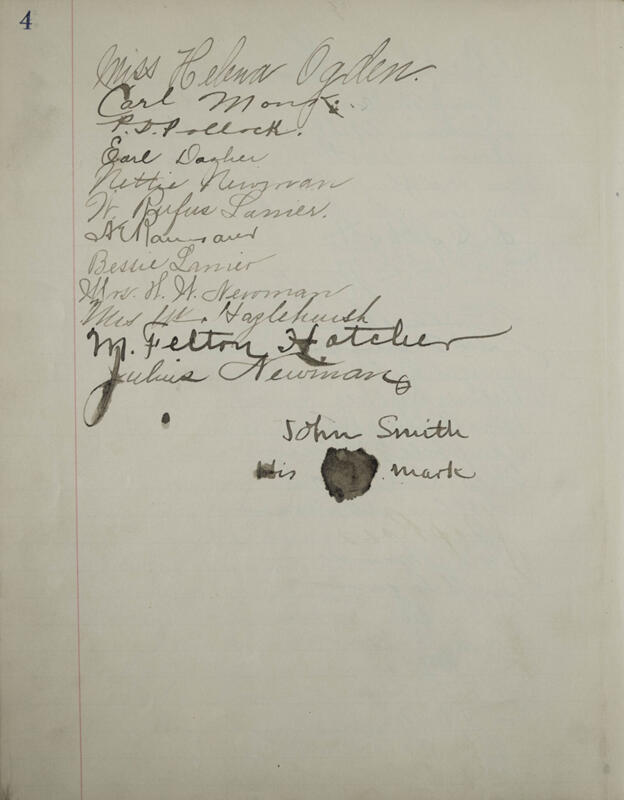 4
Miss Helena Ogden.
Carl Monk.
P. D. Pollock.
Earl Dasher
Nettie Newman
W. Rufus Lanier.
Bessie Lanier
Mrs. H. W. Newman
Mrs Wm Hazlehurst
M. Felton Hatcher
Julius Newman
John Smith
His mark